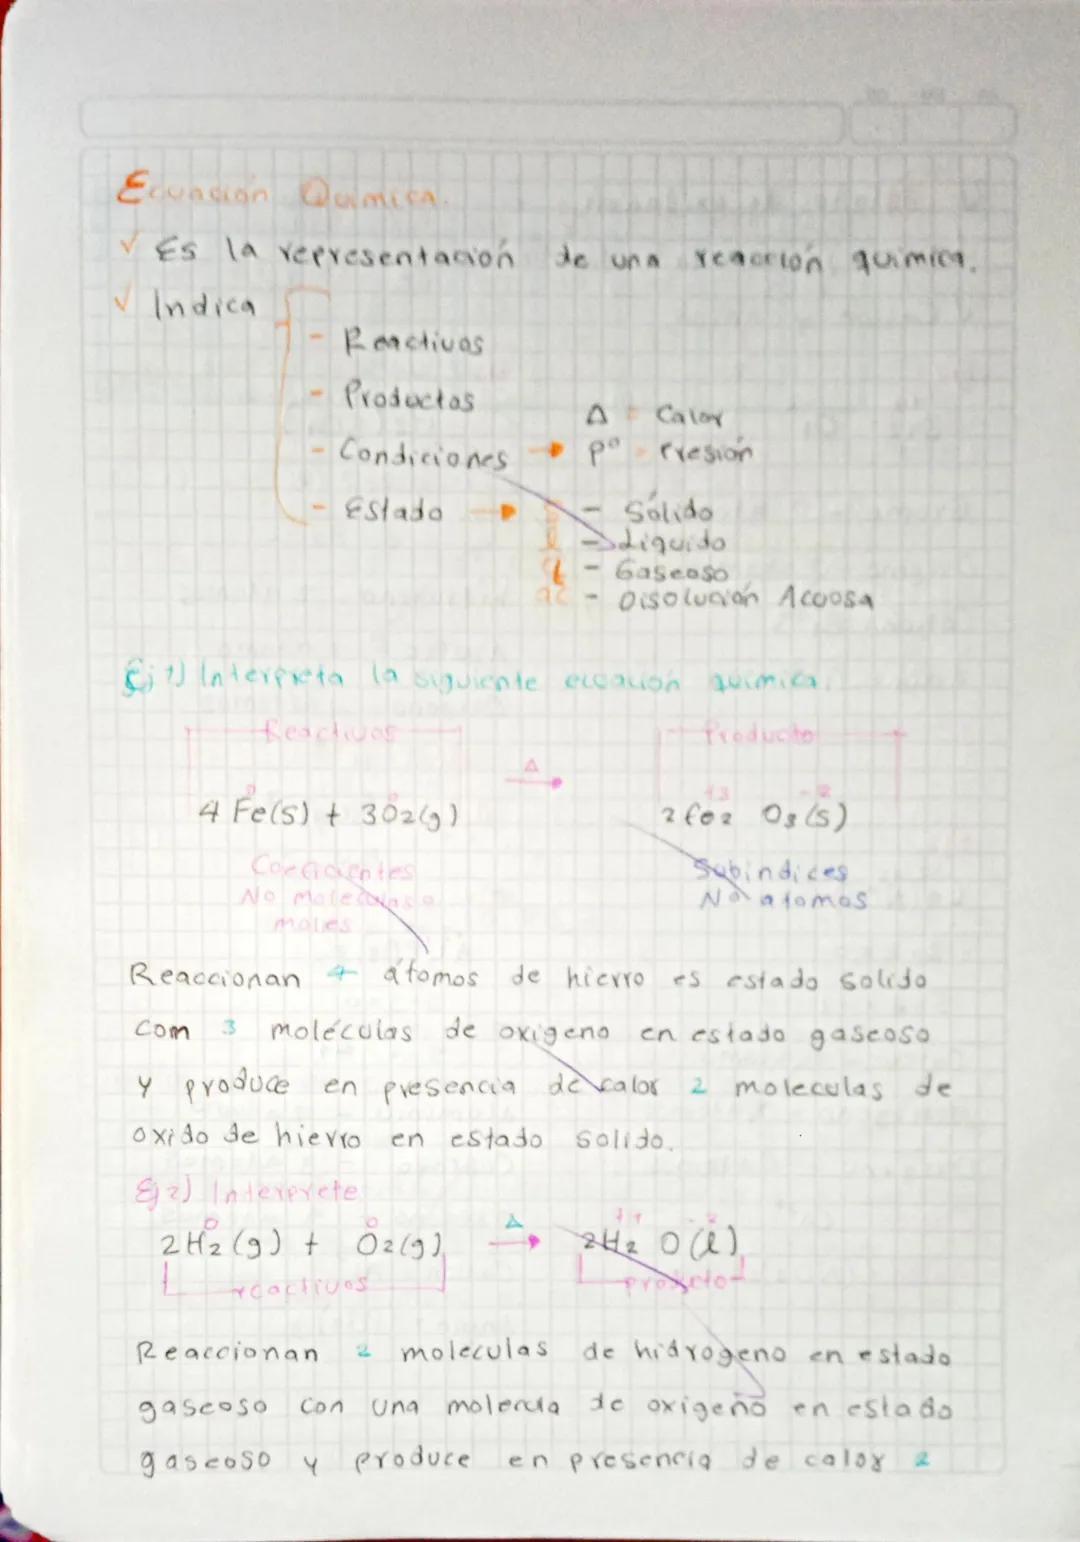 Ecuación Química.
✓ Es la representación de una reacción química.
✓ Indica
- Reactivos
- Productos
Δ = Calor
- Condiciones → P° = Presión
- Estado → s - Sólido
l - Liquido
g - Gaseoso
ac - Disolución Acuosa
Ej 1) Interpreta la siguiente ecuación química.
Reactivos Producto
Δ
0 0 +3 -2
4 Fe(s) + 3O2(g) → 2Fe2 O3(s)
Coeficientes Subindices
No moleculas o No atomos
moles
Reaccionan 4 átomos de hierro es estado solido
com 3 moléculas de oxigeno en estado gaseoso
y produce en presencia de calor 2 moleculas de
oxido de hierro en estado solido.
Ej 2) Interprete
0 0 Δ +1 -2
2H2(g) + O2(g) → 2H2 O(l)
reactivos producto
Reaccionan 2 moleculas de hidrogeno en estado
gaseoso con una molecula de oxigeno en estado
gaseoso y produce en presencia de calor 2